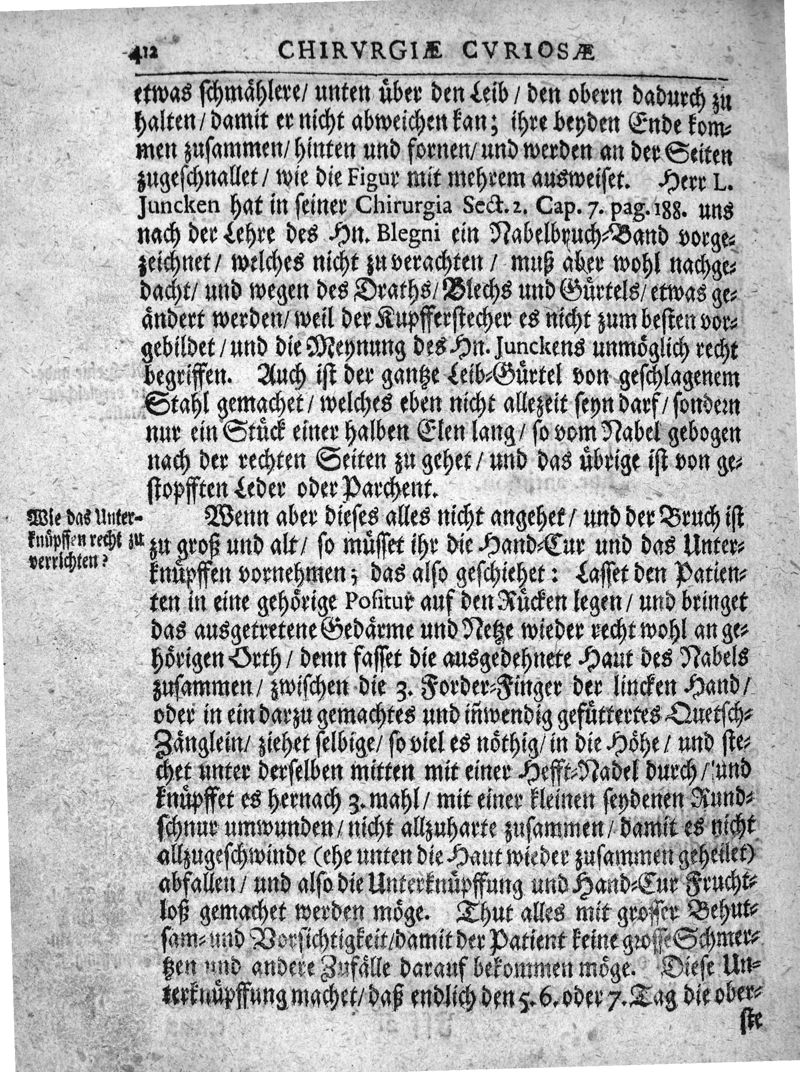 412 CHIRVRGIÆ CVRIOSÆ
etwas schmählere/ unten über den Leib/ den obern dadurch zu
halten/ damit er nicht abweichen kan; ihre beyden Ende kom-
men zusammen/ hinten und fornen/ und werden an der Seiten
zugeschnallet/ wie die Figur mit mehrem ausweiset. Herr L.
Juncken hat in seiner Chirurgia Sect. 2. Cap. 7. pag. 188. uns
nach der Lehre des Hn. Blegni ein Nabelbruch-Band vorge-
zeichnet/ welches nicht zu verachten/ muß aber wohl nachge-
dacht/ und wegen des Draths/ Blechs und Gürtels/ etwas ge-
ändert werden/ weil der Kupfferstecher es nicht zum besten vor-
gebildet/ und die Meynung des Hn. Junckens unmöglich recht
begriffen. Auch ist der gantze Leib-Gürtel von geschlagenem
Stahl gemachet/ welches eben nicht allezeit seyn darf/ sondern
nur ein Stück einer halben Elen lang/ so vom Nabel gebogen
nach der rechten Seiten zu gehet/ und das übrige ist von ge-
stopfften Leder oder Parchent.
Wie das Unter-
knüpffen recht zu
verrichten?
Wenn aber dieses alles nicht angehet/ und der Bruch ist
zu groß und alt/ so müsset ihr die Hand-Cur und das Unter-
knüpffen vornehmen; das also geschiehet: Lasset den Patien-
ten in eine gehörige Positur auf den Rücken legen/ und bringet
das ausgetretene Gedärme und Netze wieder recht wohl an ge-
hörigen Orth/ denn fasset die ausgedehnete Haut des Nabels
zusammen/ zwischen die 3. Forder-Finger der lincken Hand/
oder in ein darzu gemachtes und iñwendig gefüttertes Quetsch-
Zänglein/ ziehet selbige/ so viel es nöthig/ in die Höhe/ und ste-
chet unter derselben mitten mit einer Hefft-Nadel durch/ und
knüpffet es hernach 3. mahl/ mit einer kleinen seydenen Rund-
schnur umwunden/ nicht allzuharte zusammen/ damit es nicht
allzugeschwinde (ehe unten die Haut wieder zusammen geheilet)
abfallen/ und also die Unterknüpffung und Hand-Cur Frucht-
loß gemachet werden möge. Thut alles mit grosser Behut-
sam- und Vorsichtigkeit/ damit der Patient keine grosse Schmer-
tzen und andere Zufälle darauf bekommen möge. Diese Un-
terknüpffung machet/ daß endlich den 5. 6. oder 7. Tag die ober-
ste